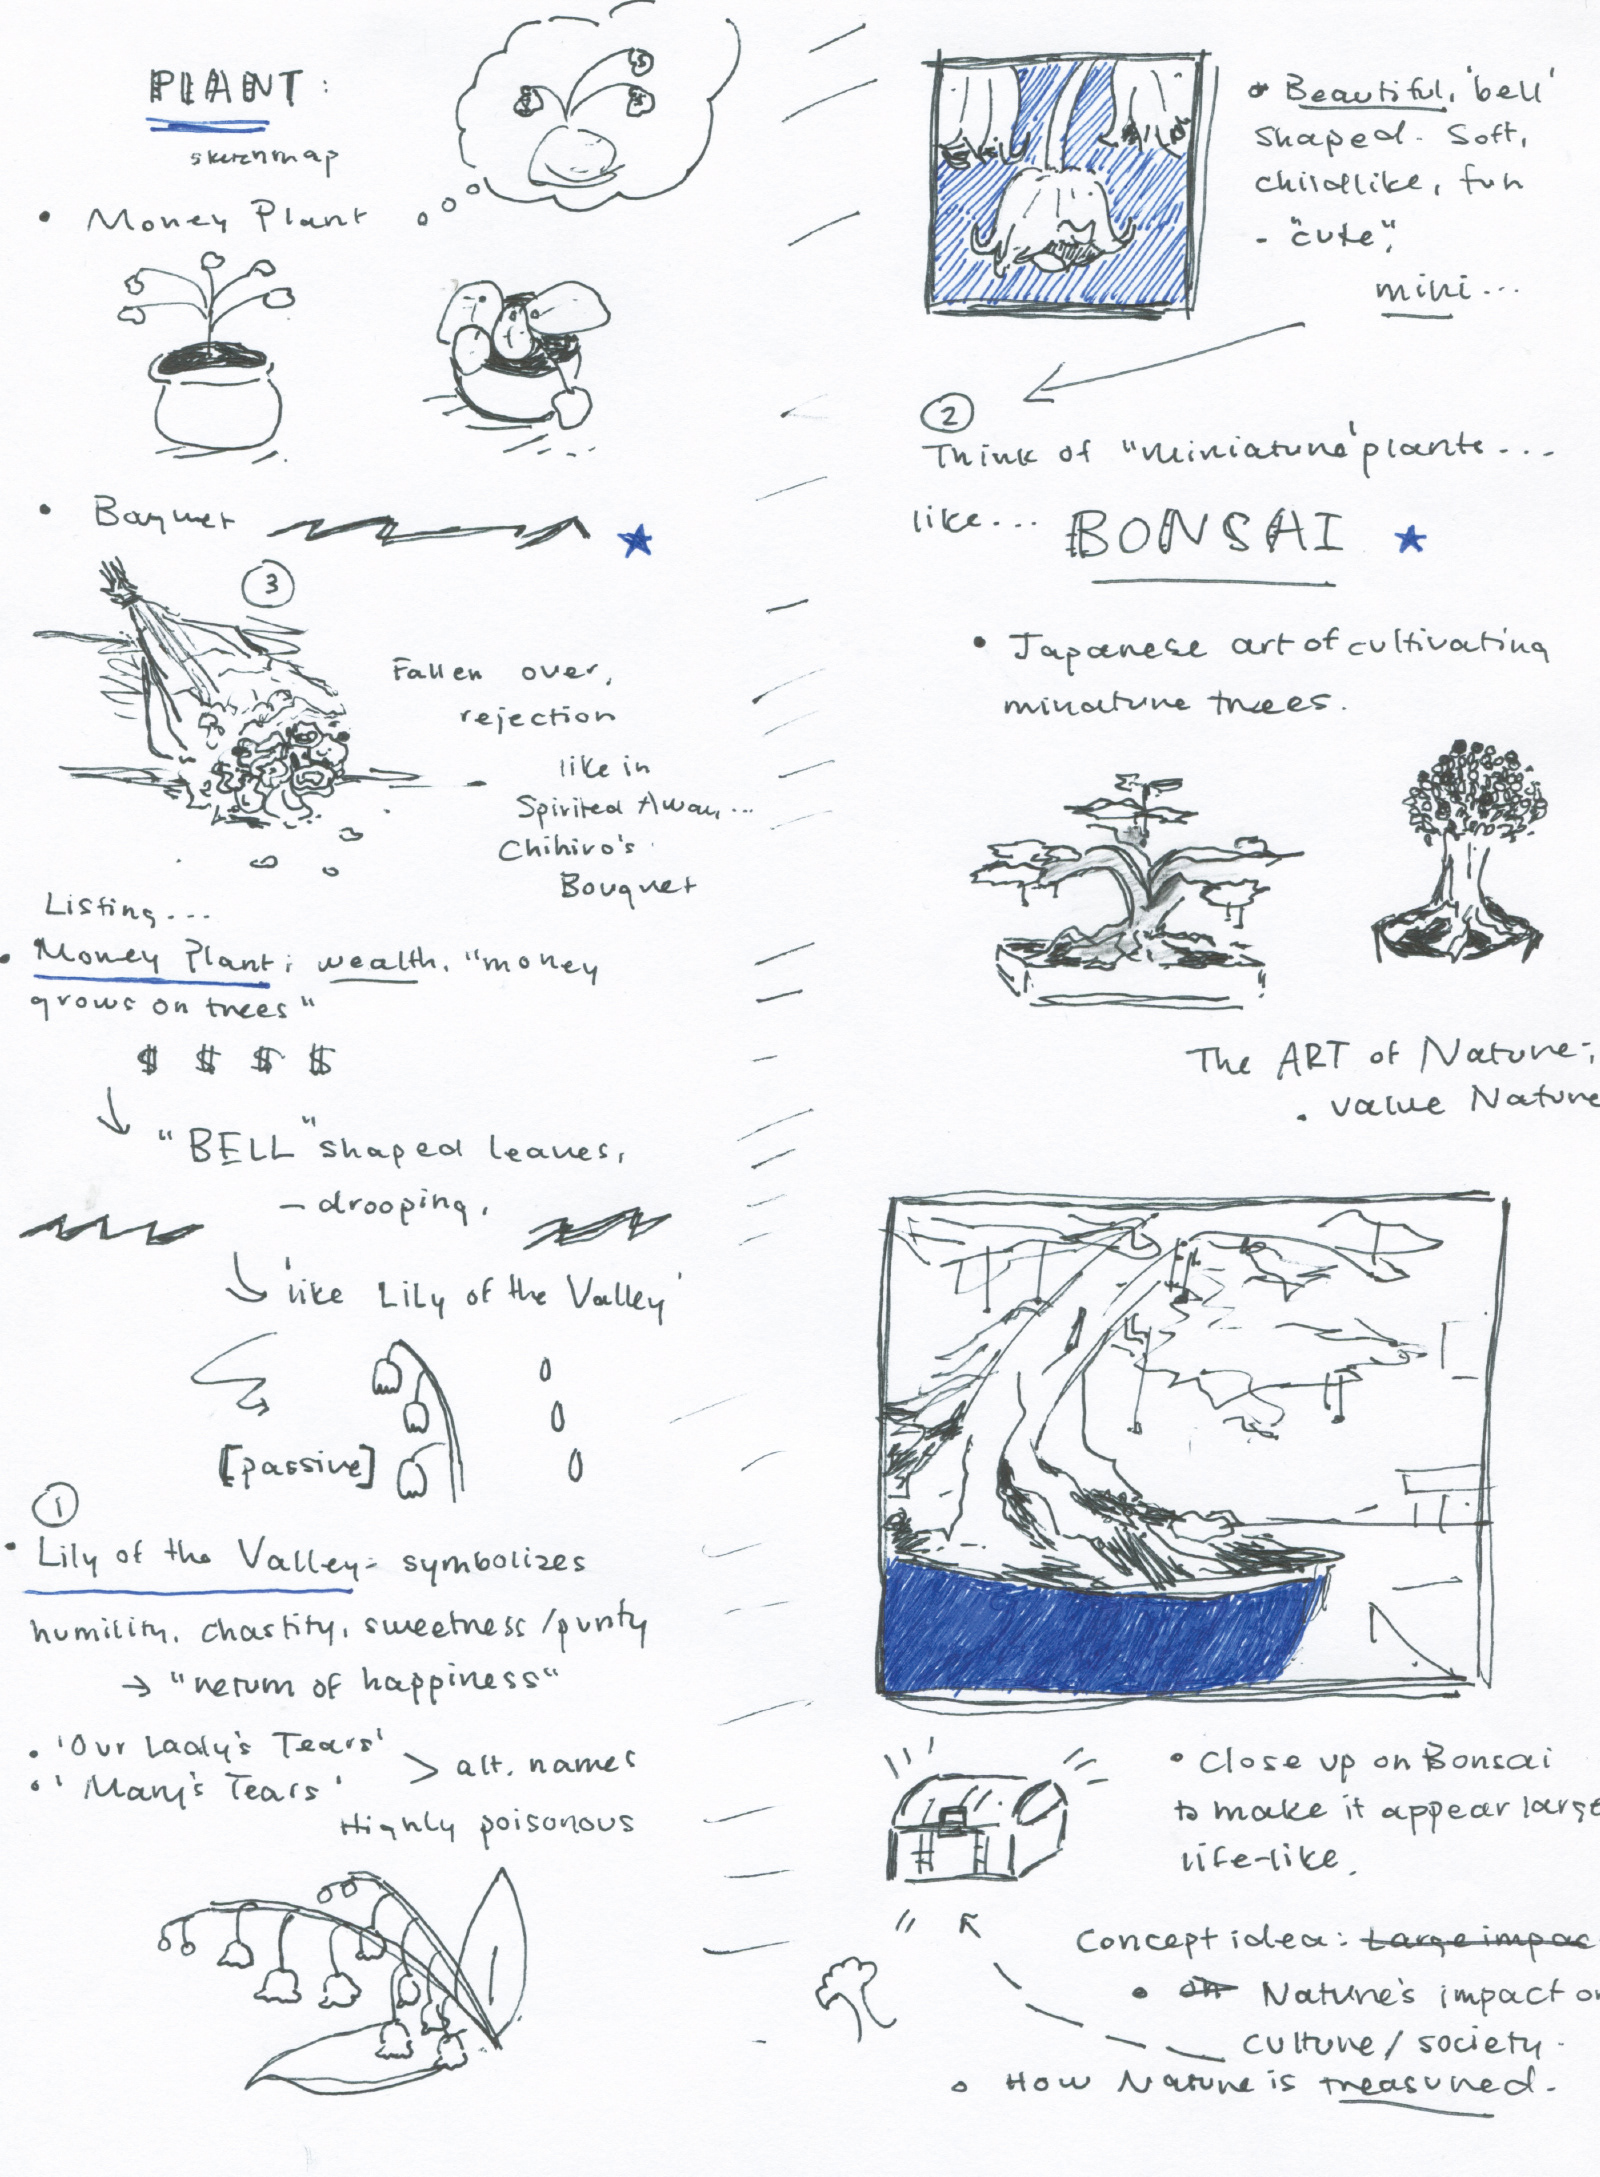 PLANT:
sketchmap
• Money Plant
• Bouquet
3
Fallen over,
rejection
like in
Spirited Away...
Chihiro's
Bouquet
Listing...
• Money Plant: wealth, "money
grows on trees"
$ $ $ $
"BELL" shaped leaves,
- drooping,
'like Lily of the Valley'
[passive]
1
• Lily of the Valley: symbolizes
humility, chastity, sweetness/purity
→ "return of happiness"
• 'Our Lady's Tears'
• 'Mary's Tears'
> alt. names
Highly poisonous
• Beautiful, 'bell'
shaped. Soft,
childlike, fun
- "cute",
mini...
2
Think of "miniature" plants...
like... BONSAI
• Japanese art of cultivating
minature trees.
The ART of Nature;
• value Nature
• Close up on Bonsai
to make it appear large
life-like.
Concept idea: Large impac
• on Nature's impact on
culture/society.
• How Nature is treasured.